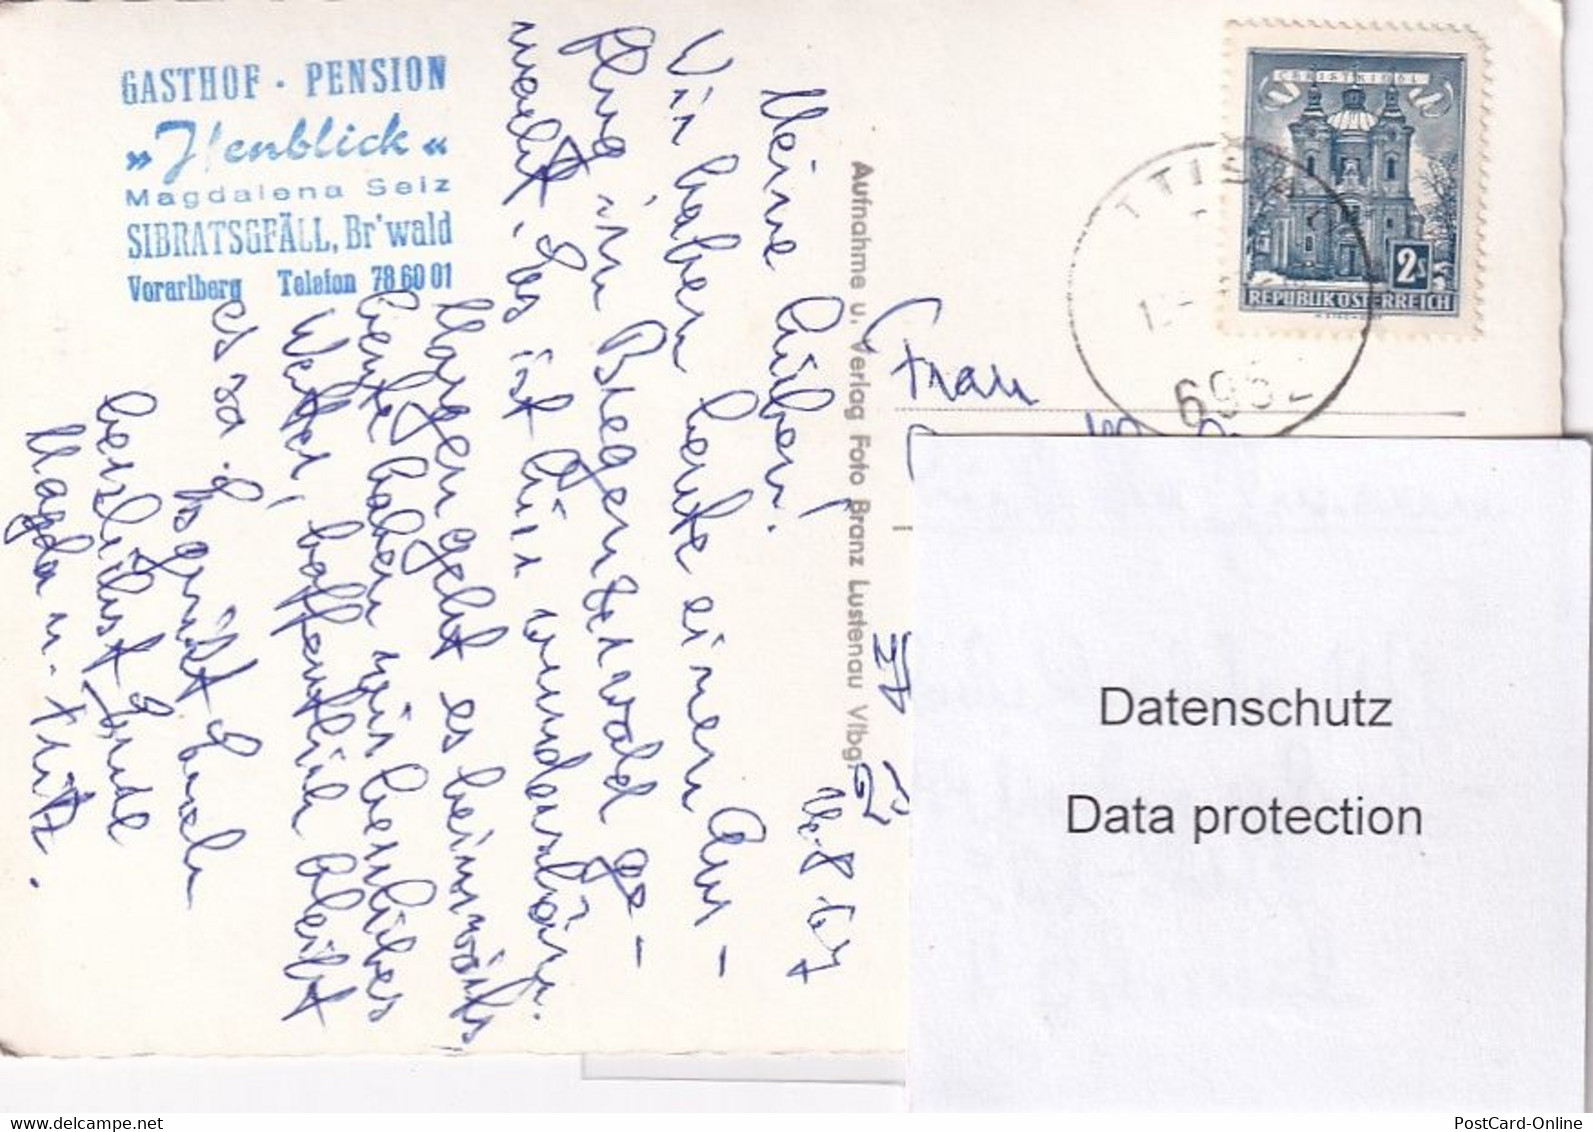 GASTHOF · PENSION
„Ifenblick“
Magdalena Seiz
SIBRATSGFÄLL, Br'wald
Vorarlberg Telefon 78 60 01
16.8.67
Meine Lieben!
Wir haben heute einen Aus-
flug in Bregenzerwald ge-
macht. Es ist hier wunderschön.
Morgen geht es heimwärts
heute haben wir herrliches
Wetter, hoffentlich bleibt
es so. Es grüßt Euch
herzlichst Eure
Magda u. Fritz.
Aufnahme u. Verlag Foto Branz Lustenau Vlbg.
CHRISTKINDL
2s
REPUBLIK ÖSTERREICH
TTISA
6952
Frau
Datenschutz
Data protection
PostCard-Online